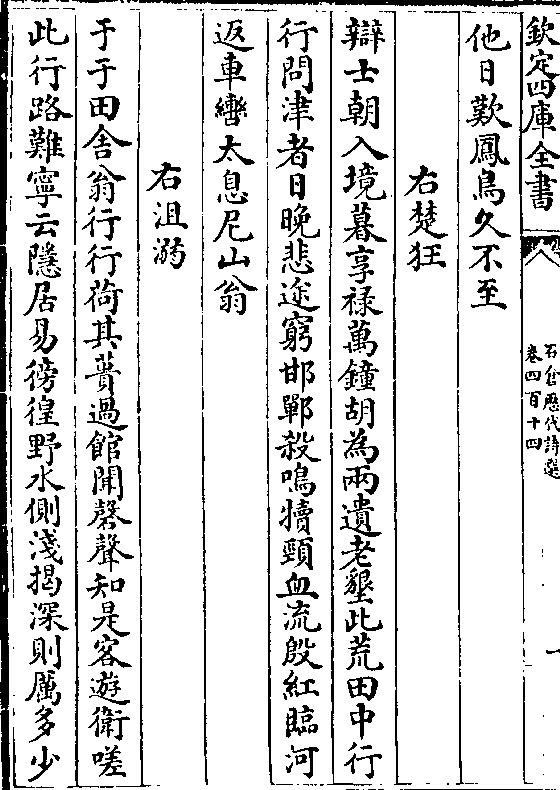 欽定四庫全書
石倉歷代詩選
卷四百十四
他日歎鳳鳥久不至
右楚狂
辯士朝入境暮享祿萬鐘胡為兩遺老墾此荒田中行
行問津者日晚悲途窮邯鄲殺鳴犢頸血流殷紅臨河
返車轡太息尼山翁
右沮溺
于于田舎翁行行荷其蕢過館聞磬聲知是客遊衛嗟
此行路難寧云隱居易徬徨野水側淺揭深則厲多少